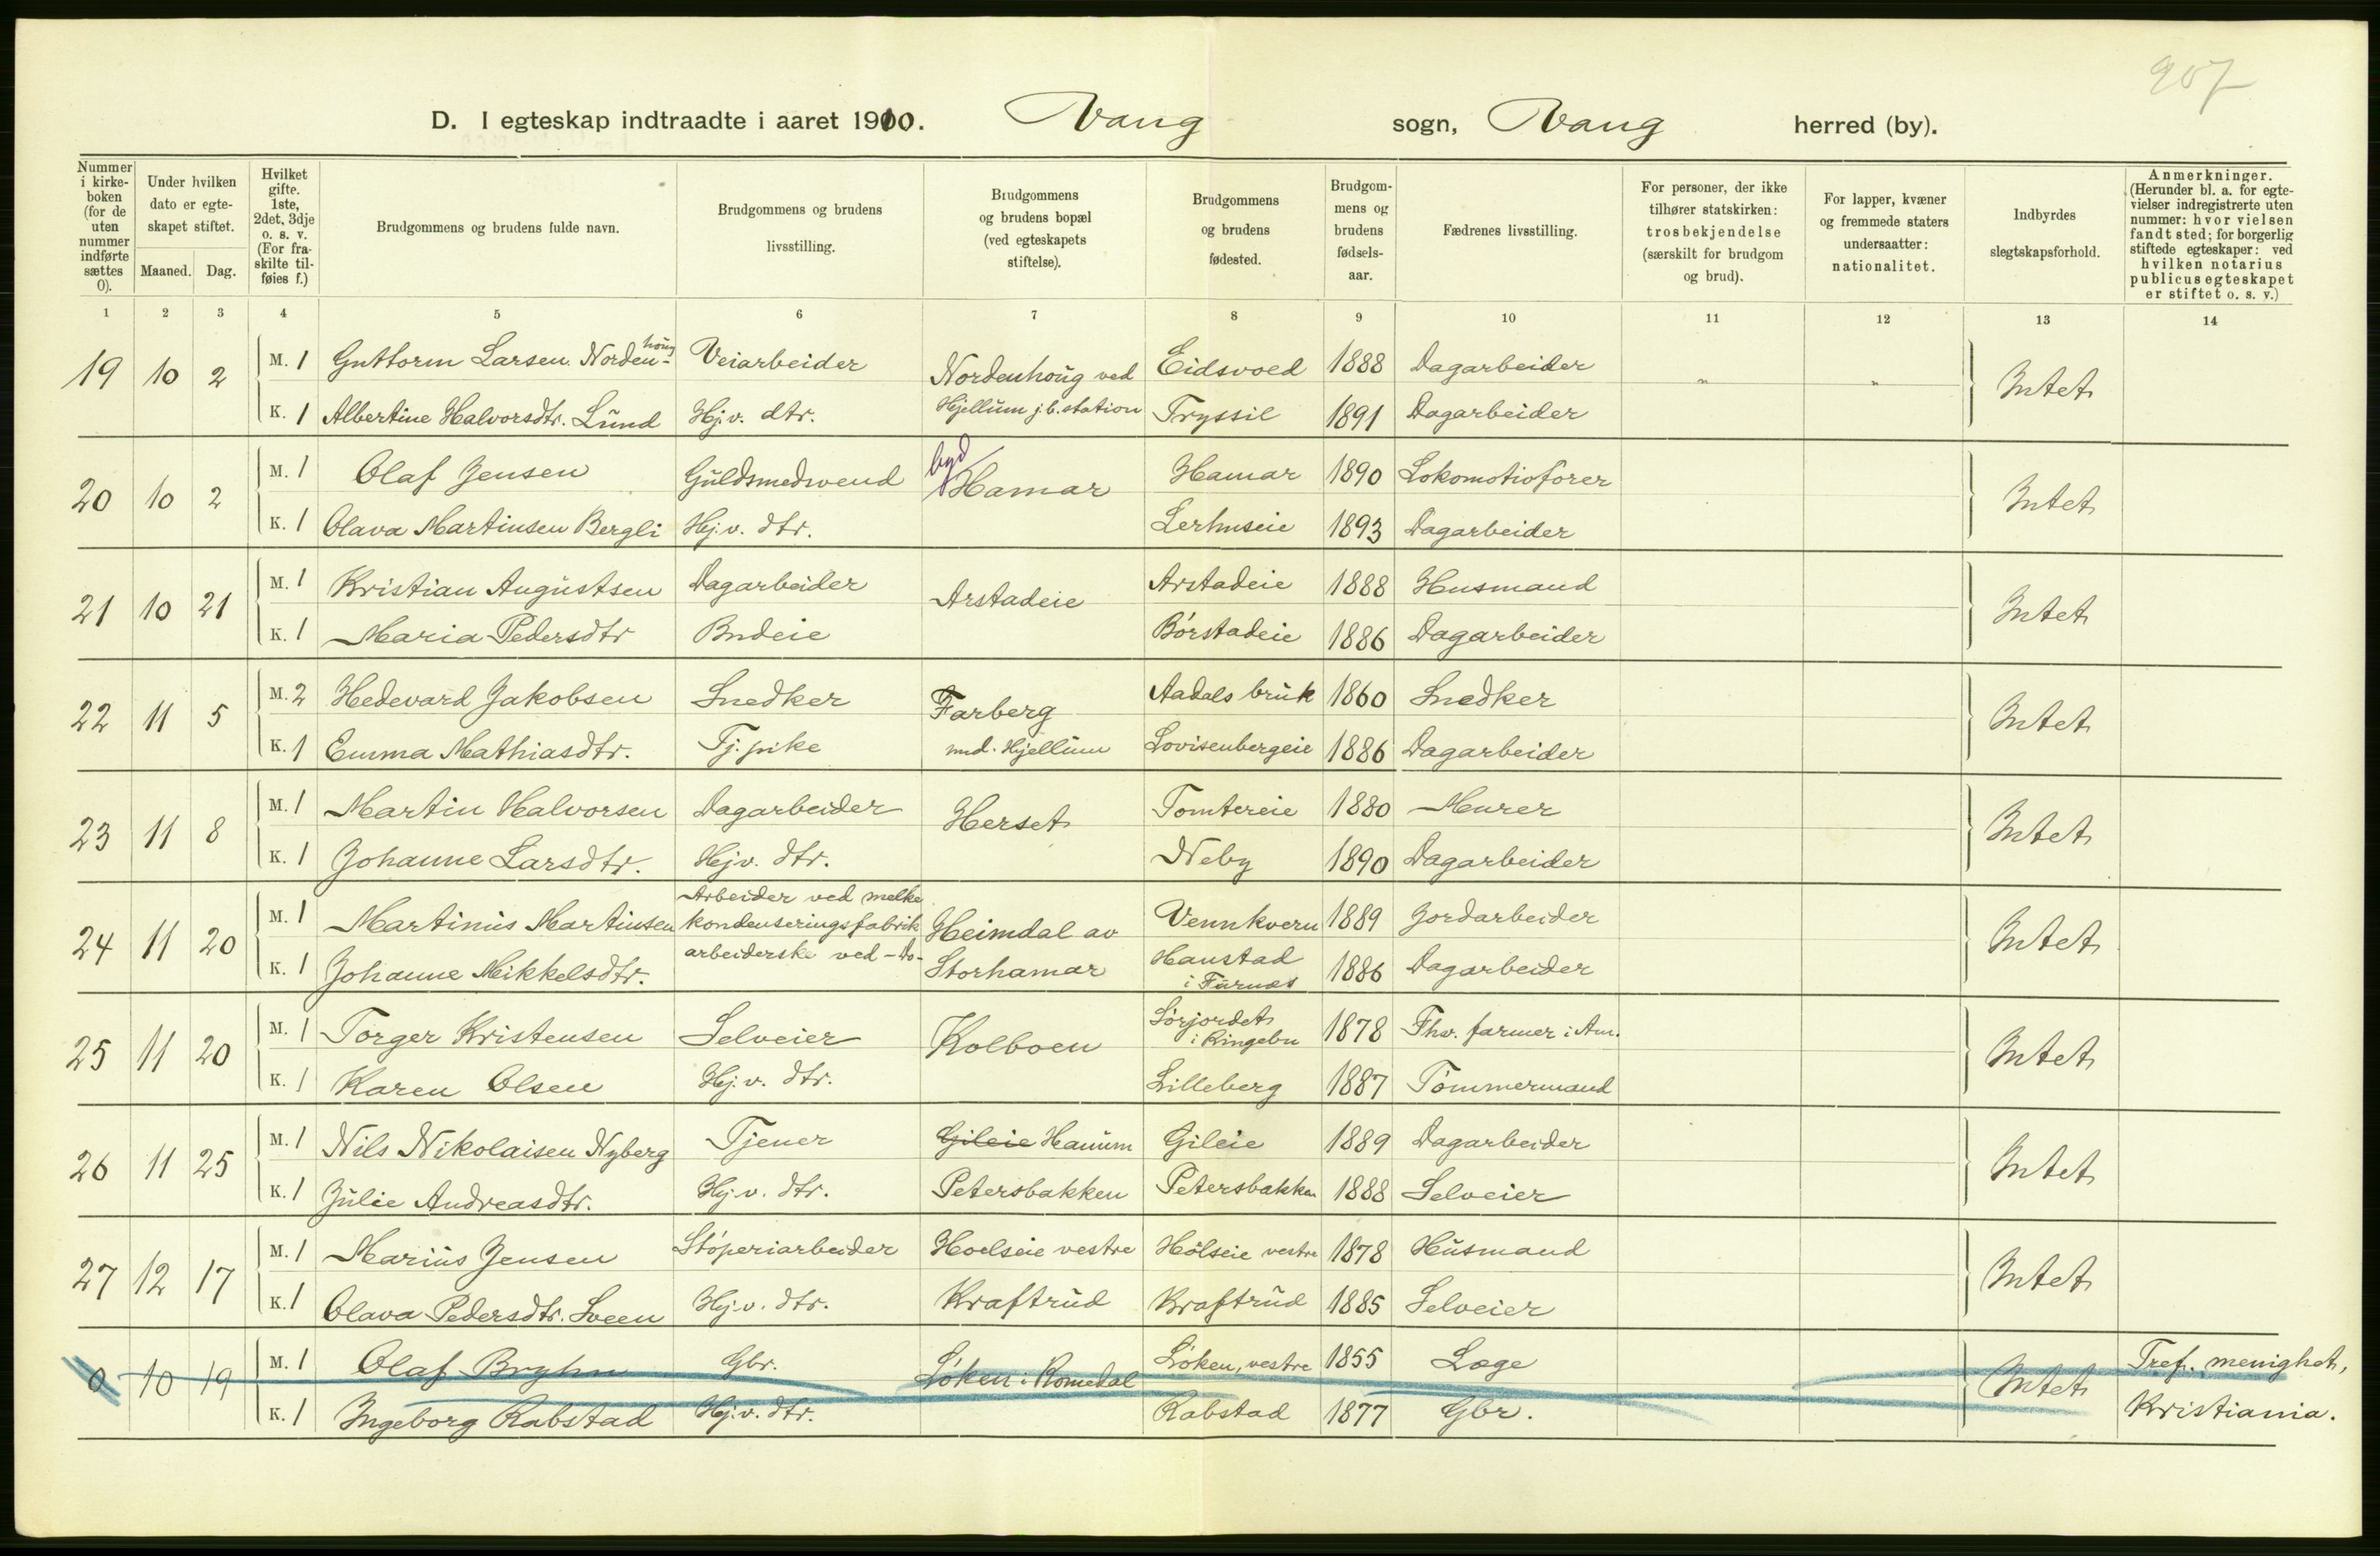 907
D. I egteskap indtraadte i aaret 1910. Vang sogn, Vang herred (by).
Nummer i kirke- boken (for de uten nummer indførte sættes 0).
Under hvilken dato er egte- skapet stiftet.
Maaned. Dag.
Hvilket gifte. 1ste, 2det, 3dje o. s. v. (For fra- skilte til- føies f.)
Brudgommens og brudens fulde navn.
Brudgommens og brudens livsstilling.
Brudgommens og brudens bopæl (ved egteskapets stiftelse).
Brudgommens og brudens fødested.
Brudgom- mens og brudens fødsels- aar.
Fædrenes livsstilling.
For personer, der ikke tilhører statskirken: trosbekjendelse (særskilt for brudgom og brud).
For lapper, kvæner og fremmede staters undersaatter: nationalitet.
Indbyrdes slegtskapsforhold.
Anmerkninger. (Herunder bl. a. for egte- vielser indregistrerte uten nummer: hvor vielsen fandt sted; for borgerlig stiftede egteskaper: ved hvilken notarius publicus egteskapet er stiftet o. s. v.)
1 2 3 4 5 6 7 8 9 10 11 12 13 14
19 10 2 M. 1 Guttorm Larsen Nordenhoug Veiarbeider Nordenhoug ved Eidsvold 1888 Dagarbeider " " Intet
K. 1 Albertine Halvorsdtr. Lund Hj. v. dtr. Hjellum j.b. station Tryssil 1891 Dagarbeider
20 10 2 M. 1 Olaf Jensen Guldsmedsvend byd Hamar Hamar 1890 Lokomotivfører Intet
K. 1 Olava Martinsen Bergli Hj. v. dtr. Lerhuseie 1893 Dagarbeider
21 10 21 M. 1 Kristian Augustsen Dagarbeider Arstadeie Arstadeie 1888 Husmand Intet
K. 1 Maria Pedersdtr Budeie Børstadeie 1886 Dagarbeider
22 11 5 M. 2 Hedevard Jakobsen Snedker Farberg Aadals bruk 1860 Snedker Intet
K. 1 Emma Mathiasdtr. Tj. pike und. Hjellum Lovisenbergeie 1886 Dagarbeider
23 11 8 M. 1 Martin Halvorsen Dagarbeider Herset Tomtereie 1880 Murer Intet
K. 1 Johanne Larsdtr. Hj. v. dtr. Neby 1890 Dagarbeider
24 11 20 M. 1 Martinius Martinsen Arbeider ved melke kondenseringsfabrik Heimdal av Vennkvern 1889 Jordarbeider Intet
K. 1 Johanne Mikkelsdtr. arbeiderske ved -do- Storhamar Hanstad i Furnes 1886 Dagarbeider
25 11 20 M. 1 Torger Kristensen Selveier Kolboen Sørjordet i Ringebu 1878 Fhv. farmer i Am. Intet
K. 1 Karen Olsen Hj. v. dtr. Lilleberg 1887 Tømmermand
26 11 25 M. 1 Nils Nikolaisen Nyberg Tjener Gileie Hanum Gileie 1889 Dagarbeider Intet
K. 1 Julie Andreasdtr. Hj. v. dtr. Petersbakken Petersbakken 1888 Selveier
27 12 17 M. 1 Marius Jensen Støperiarbeider Hoelseie vestre Hølseie vestre 1878 Husmand Intet
K. 1 Olava Pedersdtr. Sveen Hj. v. dtr. Kraftrud Kraftrud 1885 Selveier
0 10 19 M. 1 Olaf Bryhn Gbr. Løken i Romedal Løken, vestre 1855 Læge Intet Tref. menighet,
K. 1 Ingeborg Rabstad Hj. v. dtr. Rabstad 1877 Gbr. Kristiania.